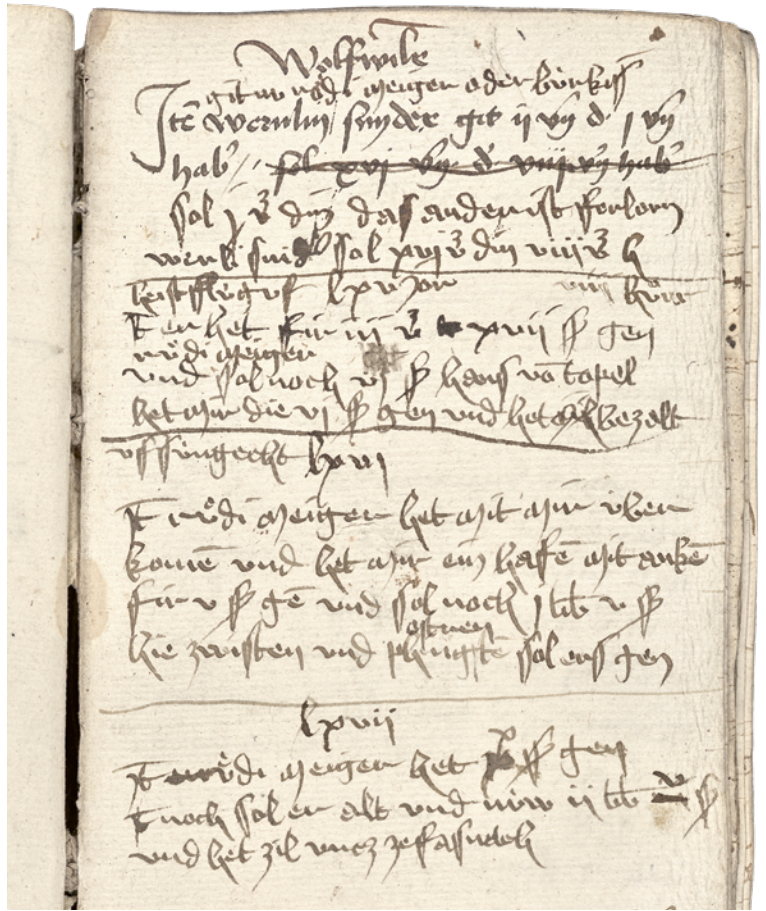 Wolfwile
git nu růdi meiger oder bürkis
Itē wernlin snyder git ij vʒ d j vʒ
hab // sol xvj vʒ d viiij vʒ hab
sol j v̄ din das ander ist ferlorn
wernli snid sol xvj v̄ din viiij v̄ h
uf lxv jor viij
It er het für iij v̄ xvij ß gen
růdi meiger
und sol noch vj ß hans vō capel
het mir die vj ß gen und het bezalt
uf sungecht lxvj
It růdi meiger het mit mir über
komē und het mir ein hafē mit ankē
für v ß gē und sol noch j lib v ß
ostren
hie zwisten und phingstē sol ers gen
lxvij
It růdi meiger het ß gen
It noch sol er alt und nüw ij lib v ß
und het zil uncz ze fasnach